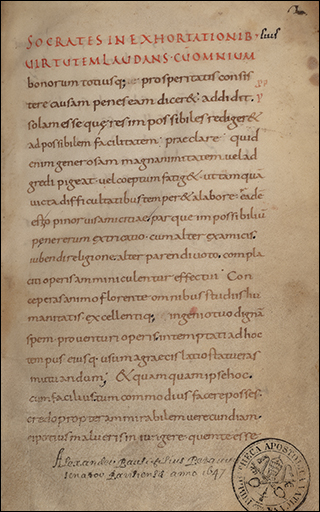 SOCRATES IN EXHORTATIONIB· suis
UIRTUTEM LAUDANS· CUOMNIUM
bonorum totiusq; prosperitatis consis
tere causam penes eam dicer& addidit.
solam esse quę res impossibiles rediger&
ad possibilem facilitatem· praeclare· quid
enim generosam magnanimitatem· vel ad
gredi pigeat· vel coeptum fatig&· ut tamqua
victa difficultatibus temper& a labore· eadē
ē opinor vis amicitiae· par que impossibiliū
pene rerum extricatio· cum alter ex amicis·
iubendi religione· alter parendi voto· compla
citi operis amminiculentur effectui· Con
ceperas animo florente omnibus studiis hu
manitatis· excellentiq; ingenio tuo dignā
spem proventuri operis· intemptati ad hoc
tempus· eiusq; usum a graecis latio statueras
mutuandum; & quam quam ipse hoc·
cum facilius· tum commodius facere posses·
credo propter ammirabilem verecundiam·
ei potius malueris iniungere· quem te esse
Alexander Paul. filius Petavius
senator Parisiensis anno 1647